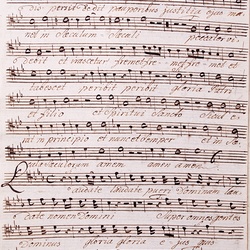 Dispersit dedit pauperibus justitia ejus ma
net in Saeculum Saeculi peccator vi
debit et irascetur fremet fremet fremet et
tabescet peribit peribit gloria Patri
et filio et Spiritui Sancto Sicut e
rat in principio et nunc et semper et in Sae
cula Saeculorum amen amen
Laudate laudate pueri Dominum lau
date nomen Domini Super omnes gentes
Dominus gloria gloria ejus